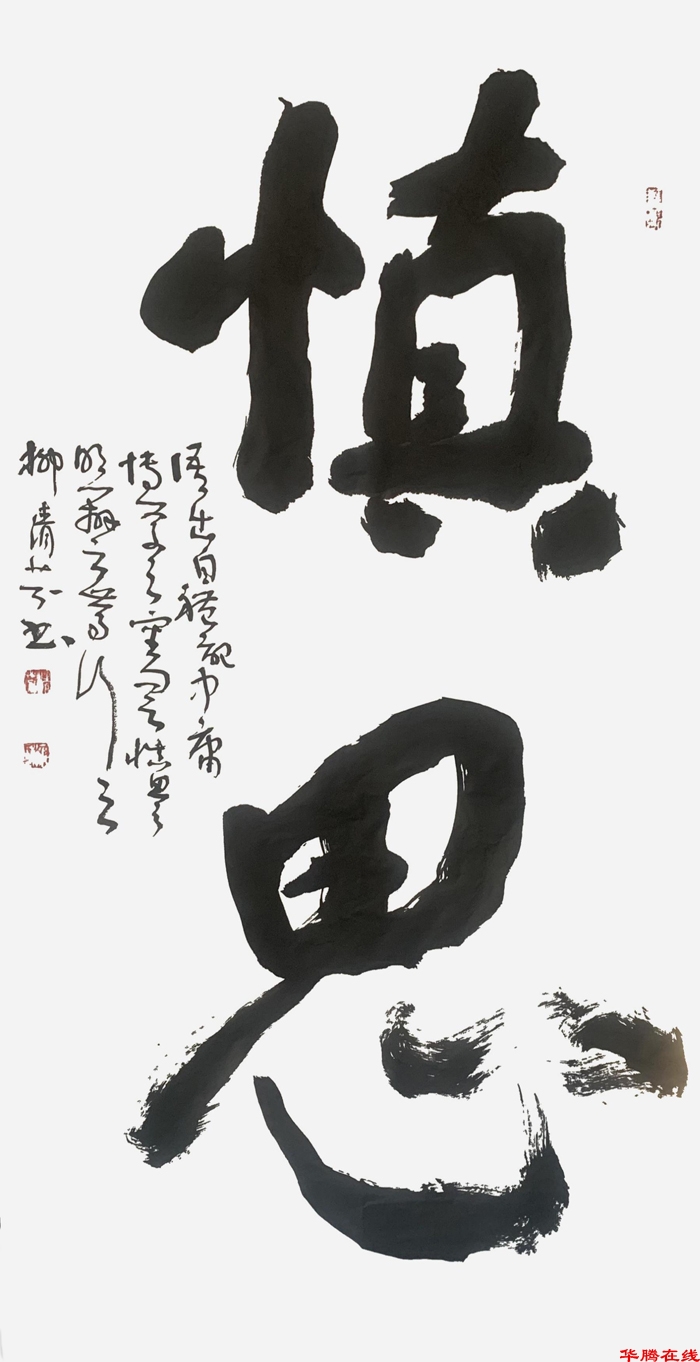 慎思
语出自礼记中庸
博学之审问之慎思之
明辨之笃行之
柳清
书
华腾在线